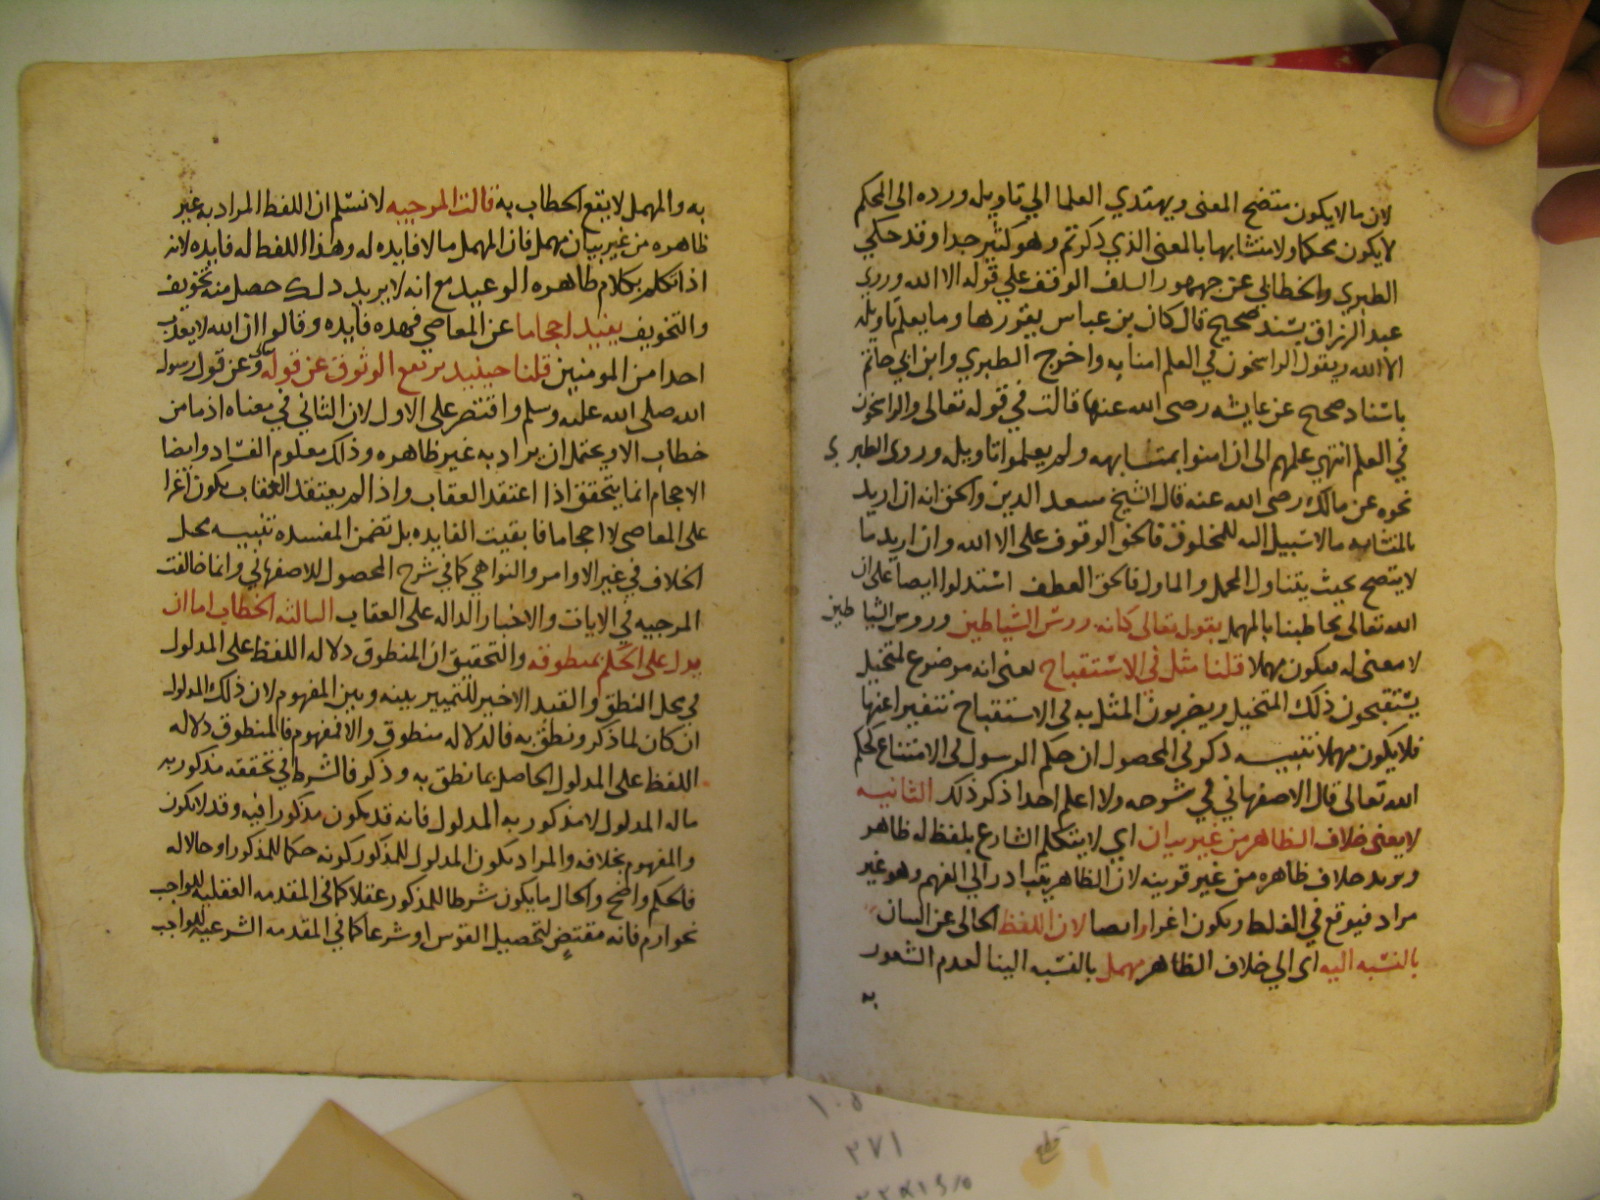 لان مالا يكون متضح المعنى ويهتدي العلما الي تاويله ورده الى المحكم
لا يكون محكما ولا متشابها بالمعنى الذي ذكرتم وهو كثير جدا وقد حكي
الطبري والخطابي عن جمهور السلف الوقف علي قوله الا الله وروي
عبد الرزاق بسند صحيح قال كان بن عباس يقورها وما يعلم تاويله
الا الله ويقول الراسخون في العلم امنا به واخرج الطبري وابن ابي حاتم
باسناد صحيح عن عايشه رضى الله عنها قالت في قوله تعالى والراسخون
في العلم انتهي علمهم الى ان امنوا بمتشابهه ولم يعلموا تاويله وروى الطبري
نحوه عن مالك رضى الله عنه قال الشيخ سعد الدين والحق انه ان اريد
بالمتشابه مالا سبيل اليه للمخلوق فالحق الوقوف على الا الله وان اريد ما
لا يتضح بحيث يتناول المجمل والماول فالحق العطف استدلوا ايضا على ان
الله تعالى يخاطبنا بالمهمل بقوله تعالى كانه روس الشياطين وروس الشياطين
لا معنى له فيكون مهملا قلنا مثل في الاستقباح يعنى انه موضوع لمتخيل
يستقبحون ذلك المتخيل ويضربون المثل به في الاستقباح تنفيرا عنها
فلا يكون مهملا تنبيه ذكر في المحصول ان حكم الرسول في الامتناع كحكم
الله تعالى قال الاصفهاني في شرحه ولا اعلم احدا ذكر ذلك الثانيه
لا يعنى خلاف الظاهر من غير بيان اي لا يتكلم الشارع بلفظ له ظاهر
ويريد خلاف ظاهره من غير قرينه لان الظاهر يتبادر الي الفهم وهو غير
مراد فيوقع في الغلط ويكون اغرارا ايضا لان اللفظ الخالى عن البيان
بالنسبه اليه اى الي خلاف الظاهر مهمل بالنسبه الينا لعدم الشعور
به
به والمهمل لا يقع الخطاب به قالت المرجيه لا نسلم ان اللفظ المراد به غير
ظاهره من غير بيان مهمل فان المهمل مالا فايده له وهذا اللفظ له فايده لانه
اذا تكلم بكلام ظاهره الوعيد مع انه لا يريد ذلك حصل منه تخويف
والتخويف يفيد احجاما عن المعاصي فهذه فايده وقالوا ان الله لا يعذب
احدا من المومنين قلنا حينيذ يرتفع الوثوق عن قوله تعالى وعن قول رسول
الله صلى الله عليه وسلم واقتصر على الاول لان الثاني في معناه اذ ما من
خطاب الا ويحتمل ان يراد به غير ظاهره وذلك معلوم الفساد وايضا
الاحجام انما يتحقق اذا اعتقد العقاب واذا لم يعتقد العقاب يكون اغرا
على المعاصي لا احجاما فما بقيت الفايده بل تضمن المفسده تنبيه محل
الخلاف في غير الاوامر والنواهي كما في شرح المحصول للاصفهاني وانما خالفت
المرجيه في الايات والاخبار الداله على العقاب الثالثه الخطاب اما ان
يدل على الحكم بمنطوقه والتحقيق ان المنطوق دلاله اللفظ على المدلول
في محل النطق والقيد الاخير للتمييز بينه وبين المفهوم لان ذلك المدلول
ان كان لما ذكر ونطق به فالدلاله منطوق والا فمفهوم فالمنطوق دلاله
اللفظ على المدلول الحاصل بما نطق به وذكر فالشرط في تحققه مذكوريه
ما له المدلول لا مذكوريه المدلول فانه قد يكون مذكورا فيه وقد لا يكون
والمفهوم بخلافه والمراد بكون المدلول للمذكور كونه حكما للمذكور او حالا له
فالحكم واضح والحال ما يكون شرطا للمذكور عقلا كما في المقدمه العقليه للواجب
نحو ارم فانه مقتض لتحصيل القوس او شرعا كما في المقدمه الشرعيه للواجب
١٠٥
٣٧١